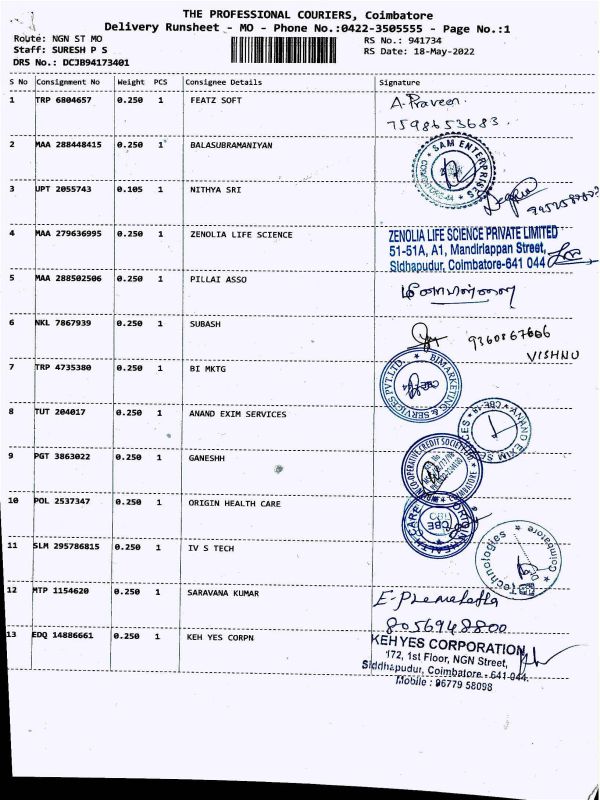 THE PROFESSIONAL COURIERS, Coimbatore
Delivery Runsheet - MO - Phone No.:0422-3505555 - Page No.:1
Route: NGN ST MO
RS No.: 941734
Staff: SURESH P S
RS Date: 18-May-2022
DRS No.: DCJB94173401
S No Consignment No Weight PCS Consignee Details Signature
1 TRP 6804657 0.250 1 FEATZ SOFT A. Praveen
7598653683.
2 MAA 288448415 0.250 1 BALASUBRAMANIYAN
SAM ENTERPRISES
3 UPT 2055743 0.105 1 NITHYA SRI
4 MAA 279636995 0.250 1 ZENOLIA LIFE SCIENCE
ZENOLIA LIFE SCIENCE PRIVATE LIMITED
51-51A, A1, Mandiriappan Street,
Sidhapudur, Coimbatore-641 044
5 MAA 288502506 0.250 1 PILLAI ASSO
6 NKL 7867939 0.250 1 SUBASH
VISHNU
7 TRP 4735380 0.250 1 BI MKTG
BI MARKETING & SERVICES PVT.LTD.
8 TUT 204017 0.250 1 ANAND EXIM SERVICES
ANAND EXIM
9 PGT 3863022 0.250 1 GANESHH
CO-OPERATIVE CREDIT SOCIETY
10 POL 2537347 0.250 1 ORIGIN HEALTH CARE
11 SLM 295786815 0.250 1 IV S TECH
Technologies * Coimbatore *
12 MTP 1154620 0.250 1 SARAVANA KUMAR
8056948800
13 EDQ 14886661 0.250 1 KEH YES CORPN
KEHYES CORPORATION
172, 1st Floor, NGN Street,
Siddhapudur, Coimbatore - 641 044.
Mobile : 96779 58098